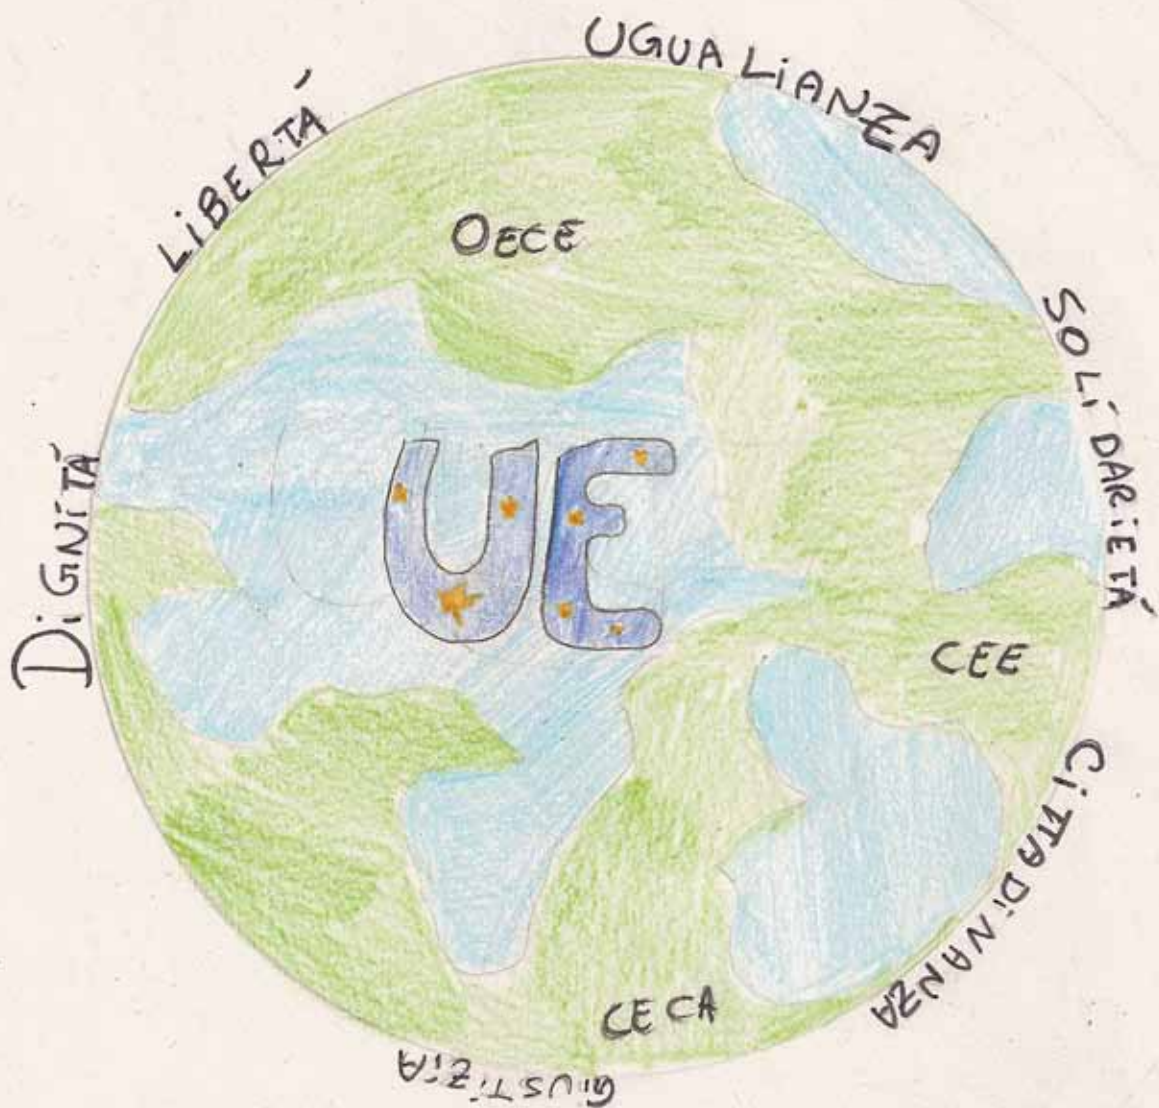 DIGNITÁ
LIBERTÁ
UGUALIANZA
SOLIDARIETÁ
CITTADINANZA
GIUSTIZIA
OECE
UE
CEE
CECA